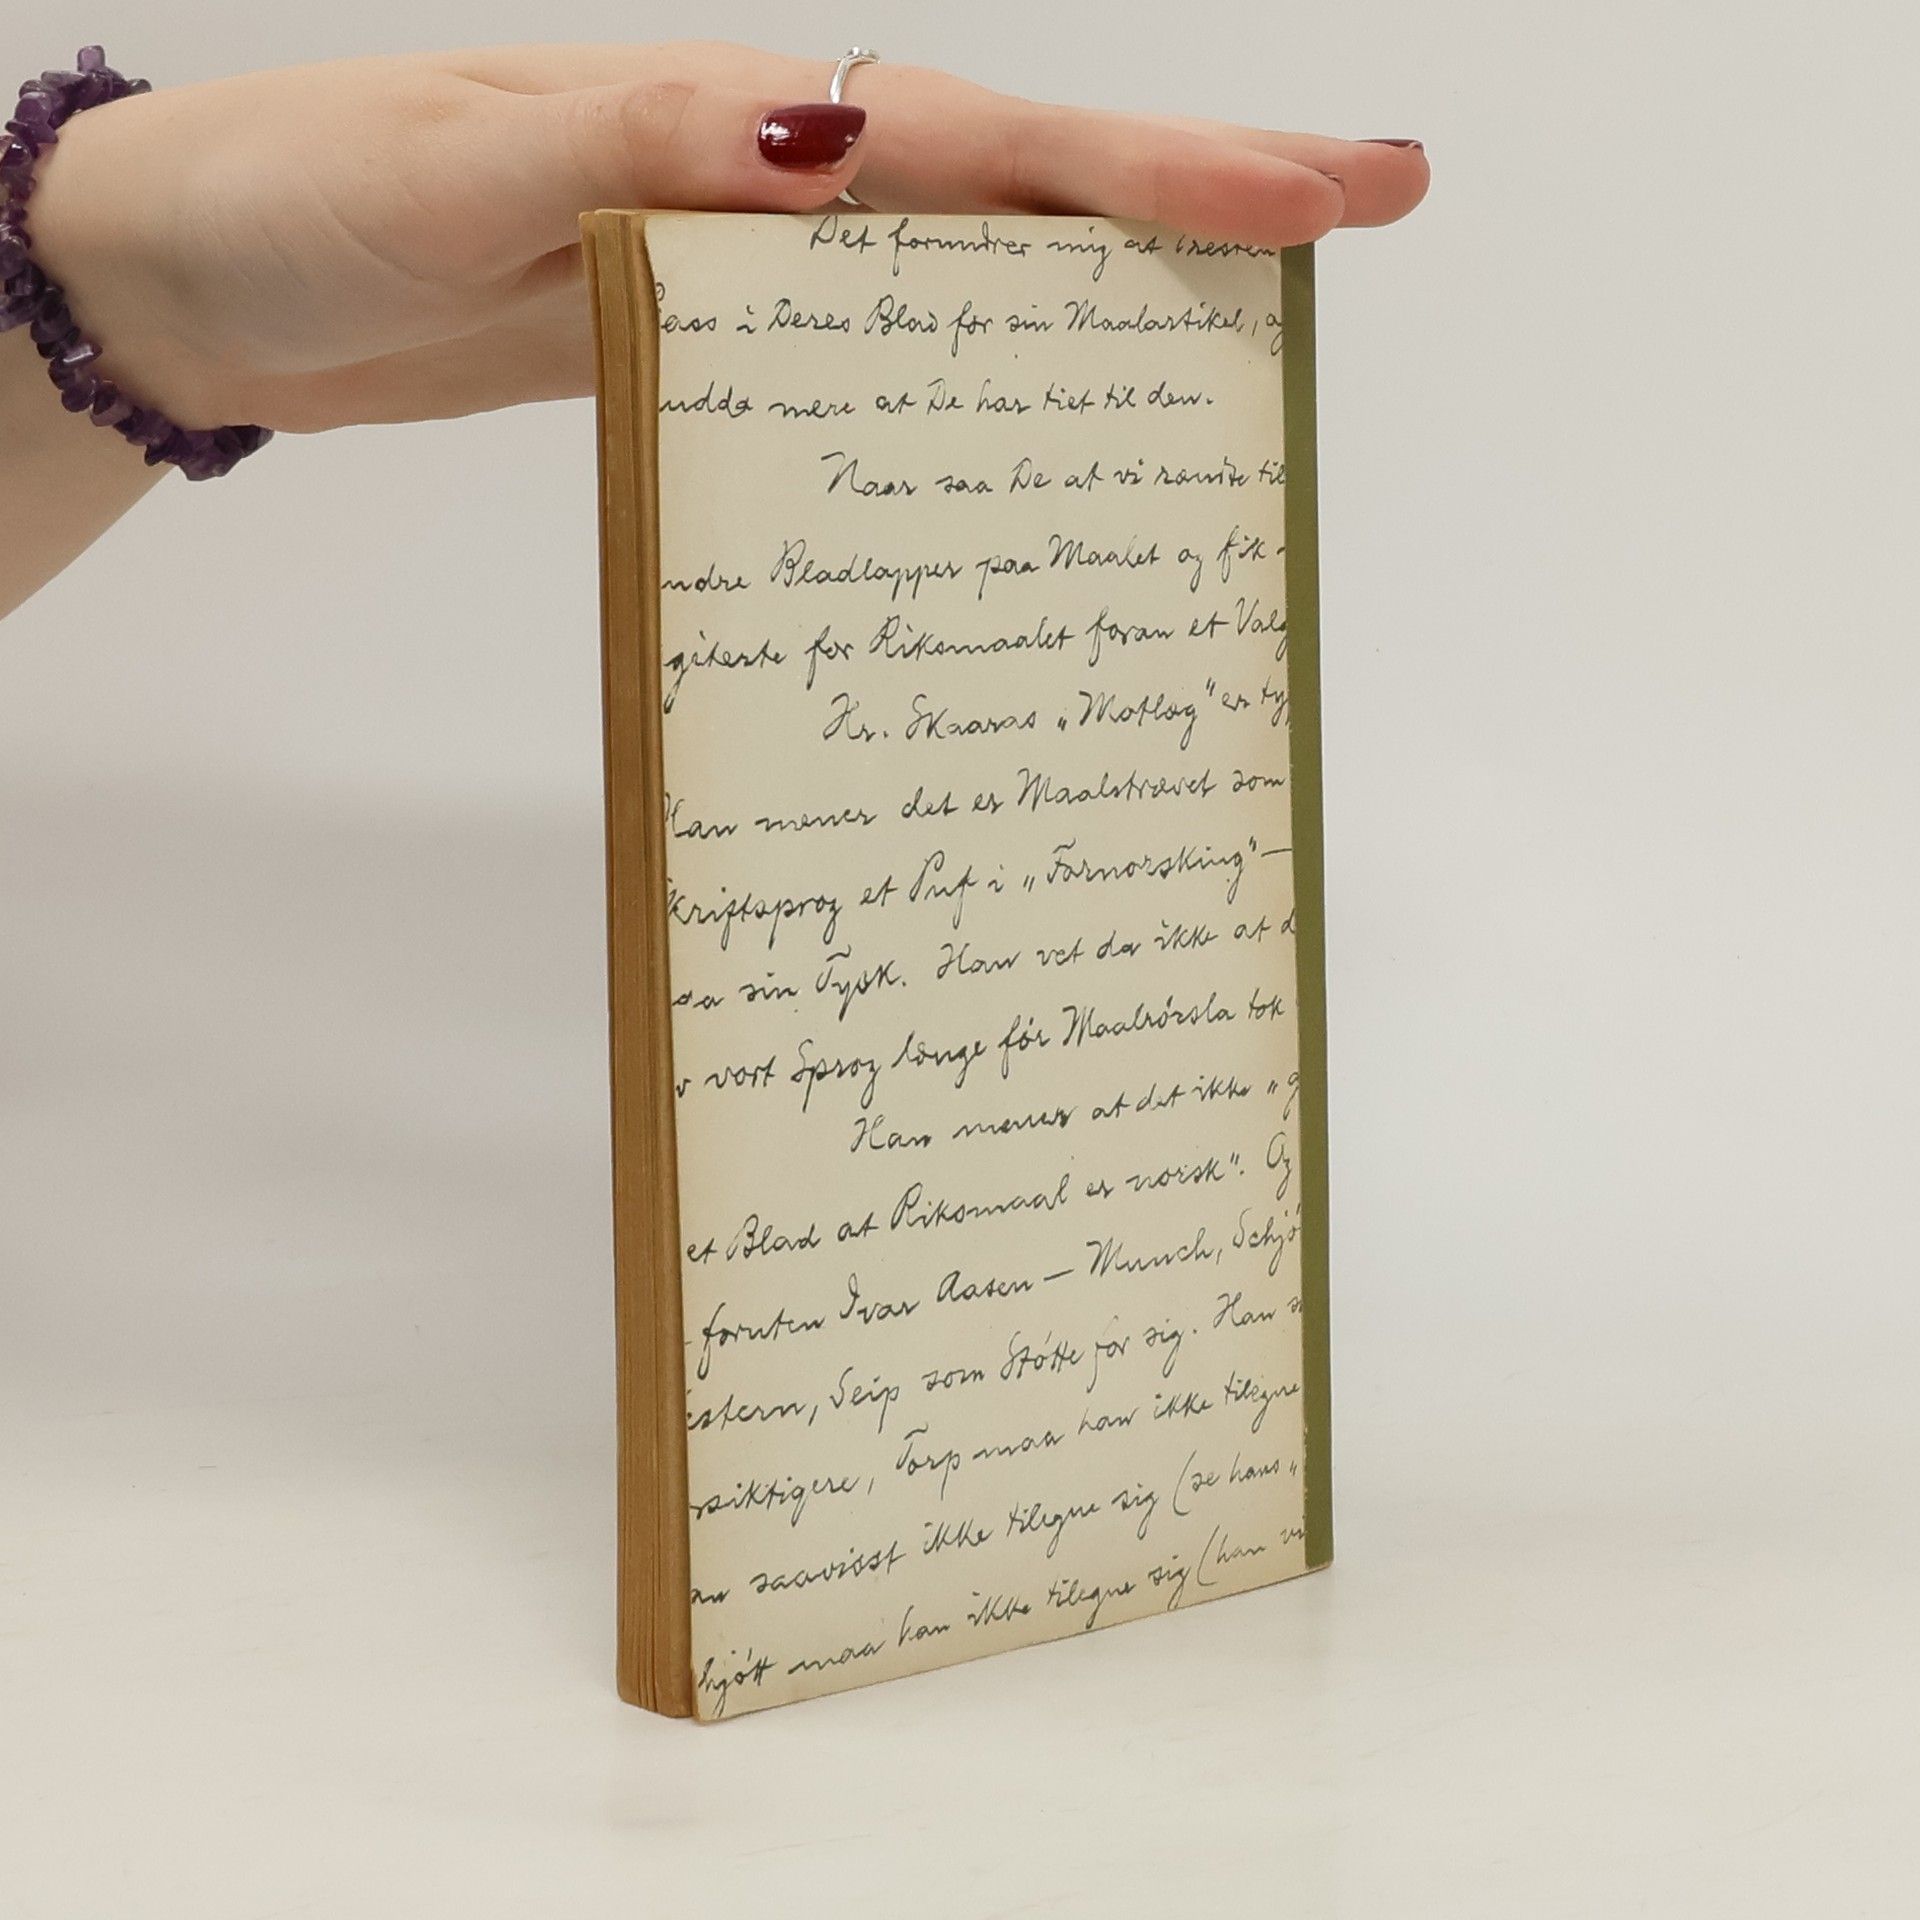 Det forundrer mig at Presten
ass i Deres Blad for sin Maalartikel, og
udda mere at De har tiet til den.
Naar saa De at vi rændte til
ndre Bladlapper paa Maalet og fik -
giterte for Riksmaalet foran et Valg
Hr. Skaaras „Motlæg" er ty
Han mener det er Maalstrævet som
kriftsprog et Puf i „Fornorsking" —
da sin Tysk. Han vet da ikke at d
v vort Sprog længe før Maalrörsla tok
Han mener at det ikke „g
et Blad at Riksmaal er norsk". Og
- foruten Ivar Aasen — Munch, Schjö
estern, Seip som Stötte for sig. Han s
rsiktigere, Torp maa han ikke tilegne
nu saavisst ikke tilegne sig (se hans „
hjött maa han ikke tilegne sig (han vi